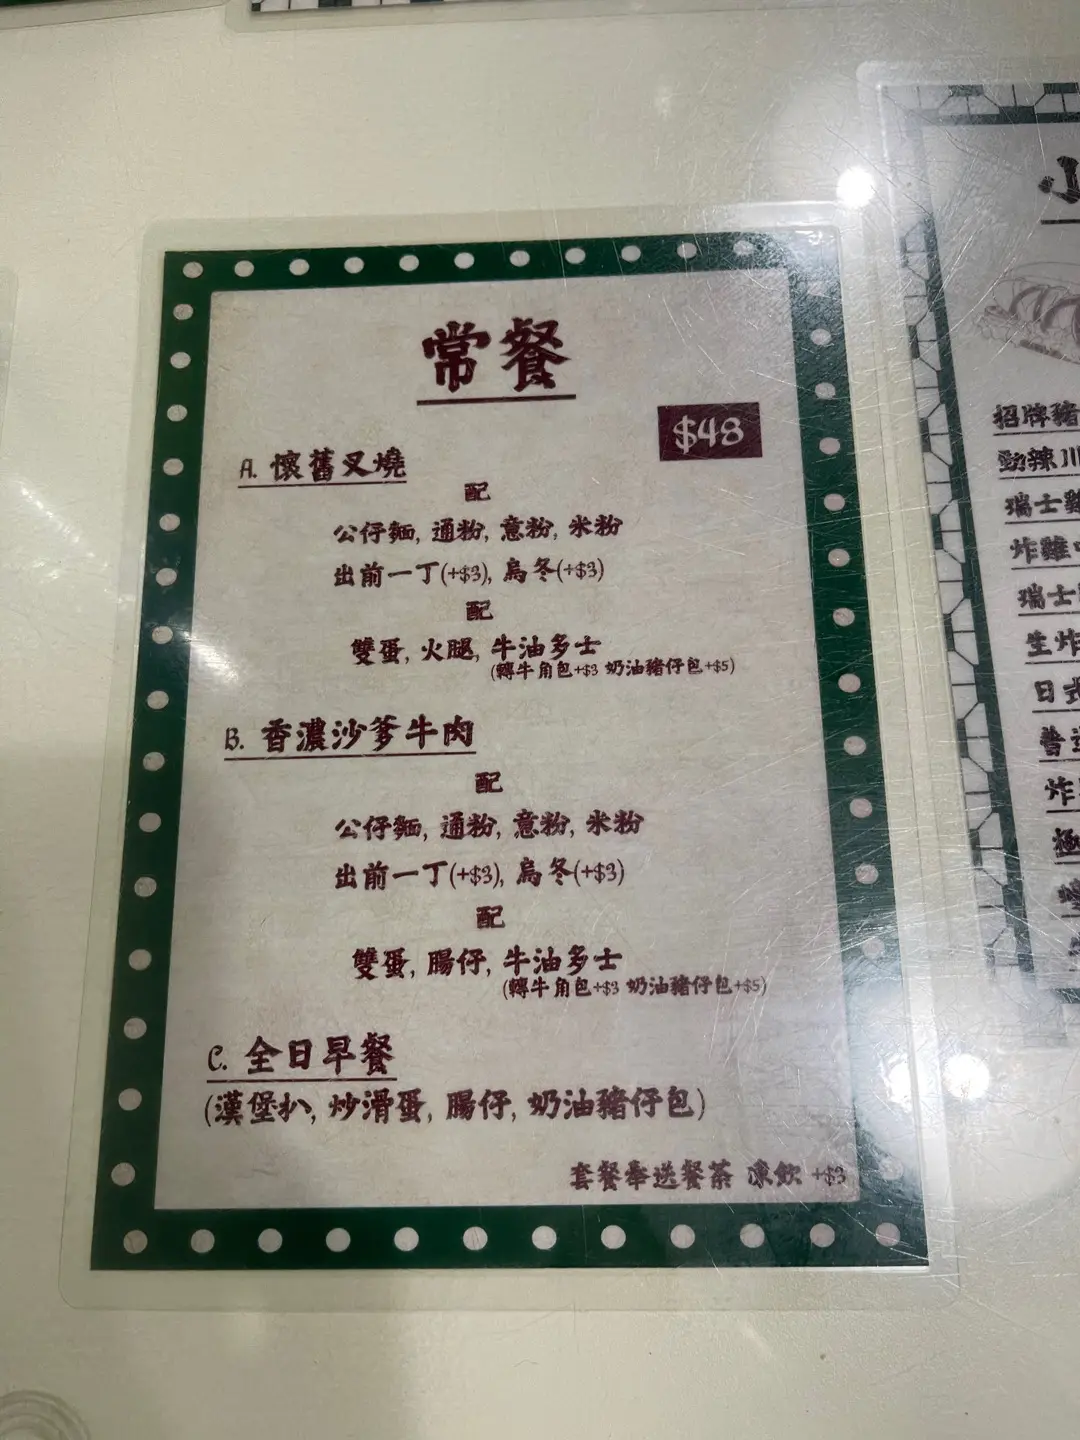 常餐
$48
A. 懷舊叉燒
配
公仔麵, 通粉, 意粉, 米粉
出前一丁(+$3), 烏冬(+$3)
配
雙蛋, 火腿, 牛油多士
(轉牛角包+$3 奶油豬仔包+$5)
B. 香濃沙爹牛肉
配
公仔麵, 通粉, 意粉, 米粉
出前一丁(+$3), 烏冬(+$3)
配
雙蛋, 腸仔, 牛油多士
(轉牛角包+$3 奶油豬仔包+$5)
C. 全日早餐
(漢堡扒, 炒滑蛋, 腸仔, 奶油豬仔包)
套餐奉送餐茶 凍飲 +$3
小
招牌豬
勁辣川
瑞士雞
炸雞
瑞士
生炸
日式
普通
炸
極